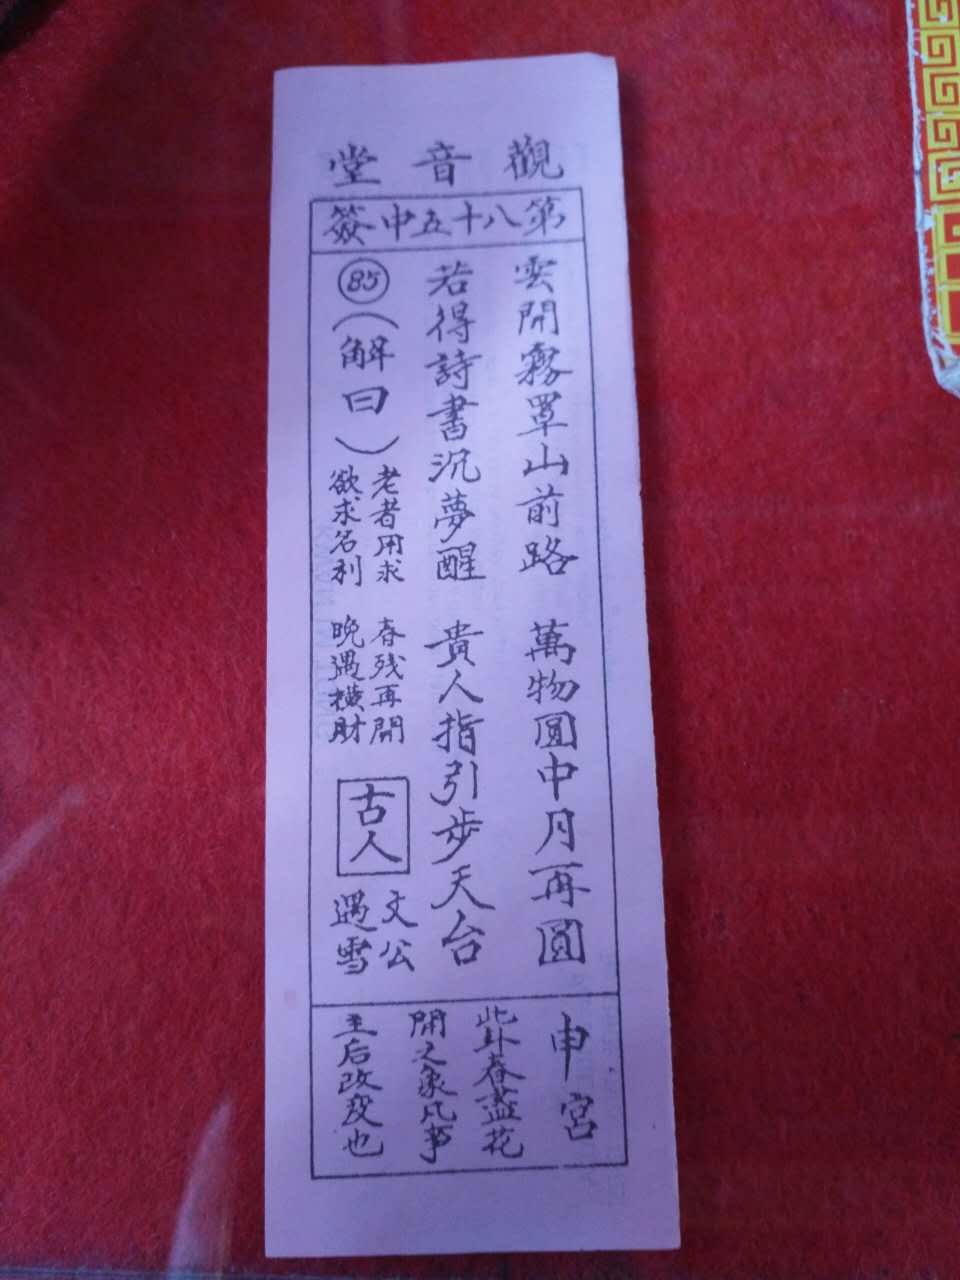 觀音堂
第八十五中簽
雲開霧罩山前路
萬物圓中月再圓
若得詩書沉夢醒
貴人指引步天台
85
（解曰）
老者用求
春残再開
欲求名利
晚遇橫財
古人
文公
遇雪
申宮
此卦春盡花
開之象凡事
主后改变也